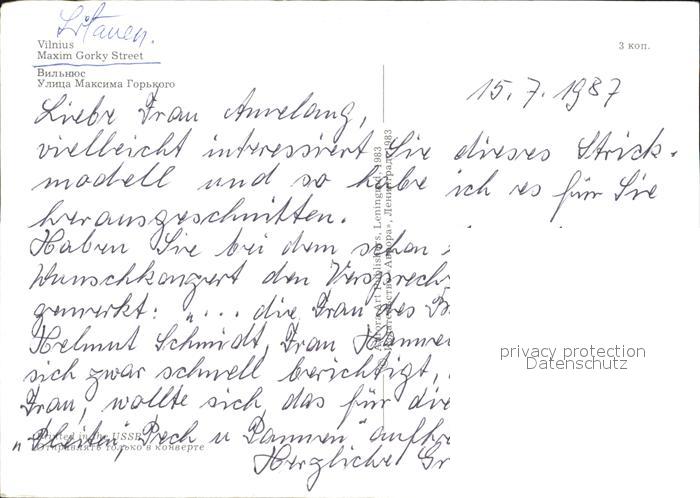 Litauen.
Vilnius
Maxim Gorky Street
3 коп.
Вильнюс
Улица Максима Горького
15. 7. 1987
Liebe Frau
vielleicht interessiert Sie dieses Strick-
modell und so habe ich es für Sie
herausgeschnitten.
Haben Sie bei dem schon
Wunschkonzert den Versprech
gemerkt: "... die Frau des
Helmut Schmidt, Frau
sich zwar schnell berichtigt,
Frau, wollte sich das für die
"Pleiten, Pech u Pannen"
Herzliche Gr
Aurora Art Publishers, Leningrad, 1983
Издательство «Аврора», Ленинград, 1983
Printed in the USSR
Отправлять только в конверте
privacy protection
Datenschutz